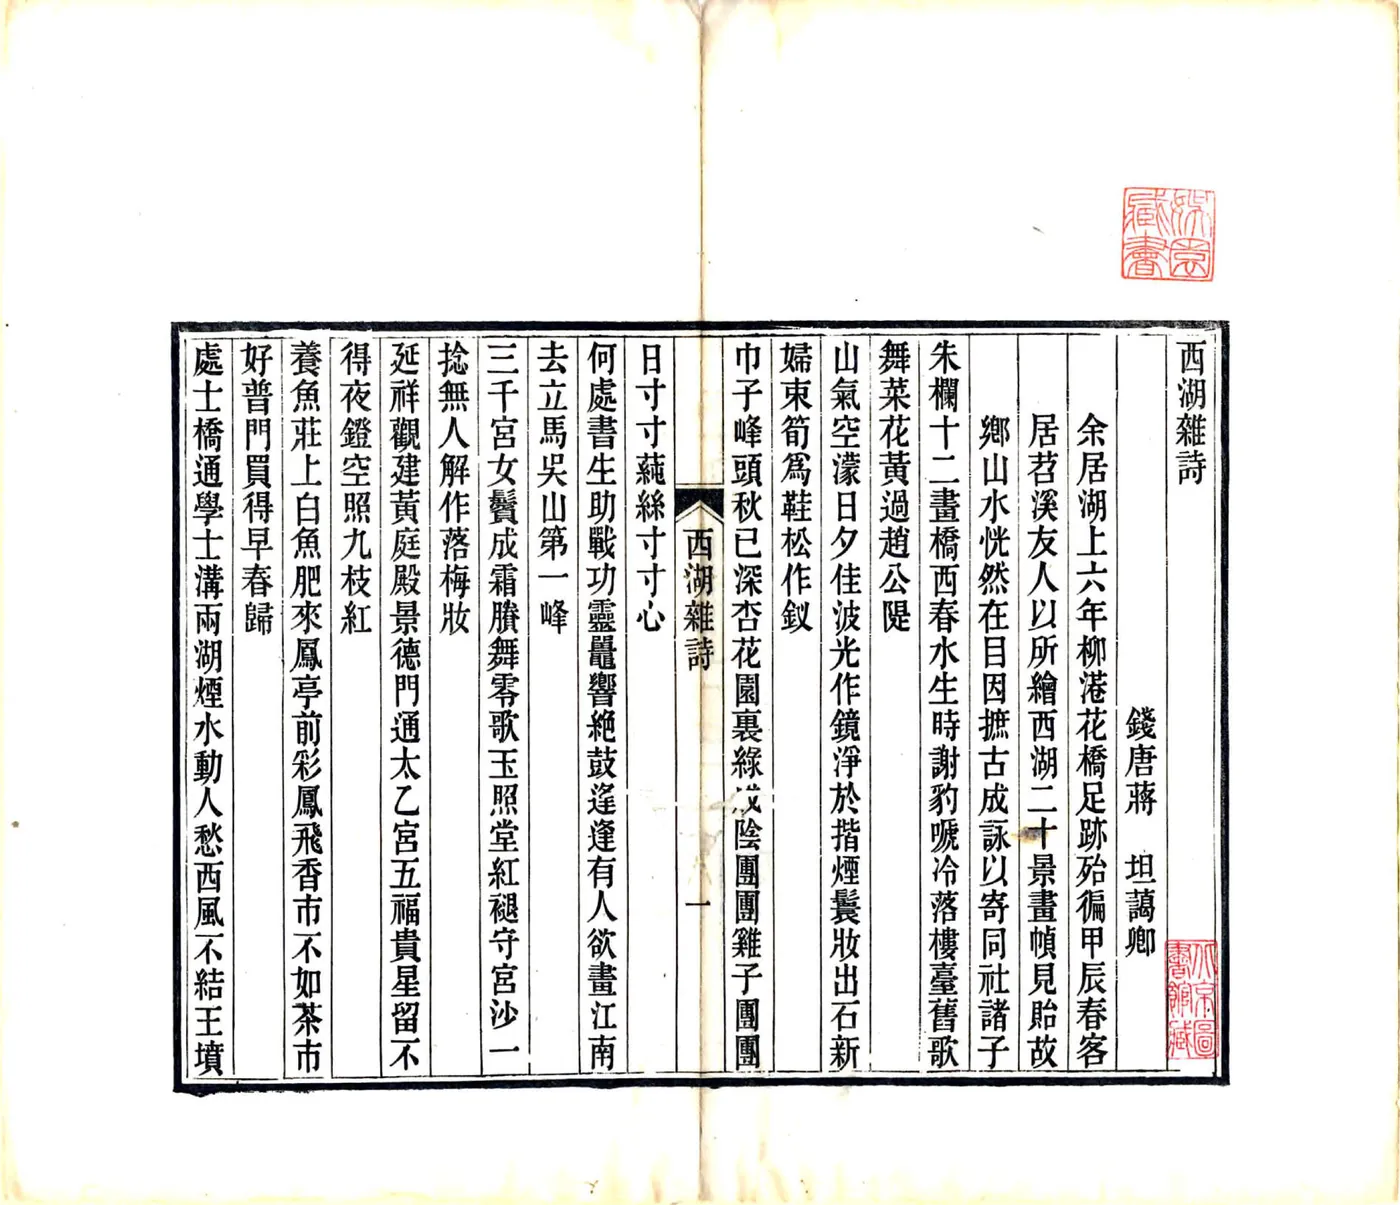 西湖雜詩
錢唐蔣　坦藹卿
余居湖上六年柳港花橋足跡殆徧甲辰春客
居苕溪友人以所繪西湖二十景畫幀見貽故
鄉山水恍然在目因摭古成詠以寄同社諸子
朱欄十二畫橋西春水生時謝豹嗁冷落樓臺舊歌
舞菜花黃過趙公隄
山氣空濛日夕佳波光作鏡淨於揩煙鬟妝出石新
婦束筍爲鞋松作釵
巾子峰頭秋已深杏花園裏綠成陰團團雞子團團
西湖雜詩
一
日寸寸蒓絲寸寸心
何處書生助戰功靈鼉響絶鼓逢逢有人欲畫江南
去立馬吳山第一峰
三千宮女鬢成霜賸舞零歌玉照堂紅褪守宮沙一
捻無人解作落梅妝
延祥觀建黃庭殿景德門通太乙宮五福貴星留不
得夜鐙空照九枝紅
養魚莊上白魚肥來鳳亭前彩鳳飛香市不如茶市
好普門買得早春歸
處士橋通學士溝兩湖煙水動人愁西風不結王墳
北京圖
書館藏
園
藏書